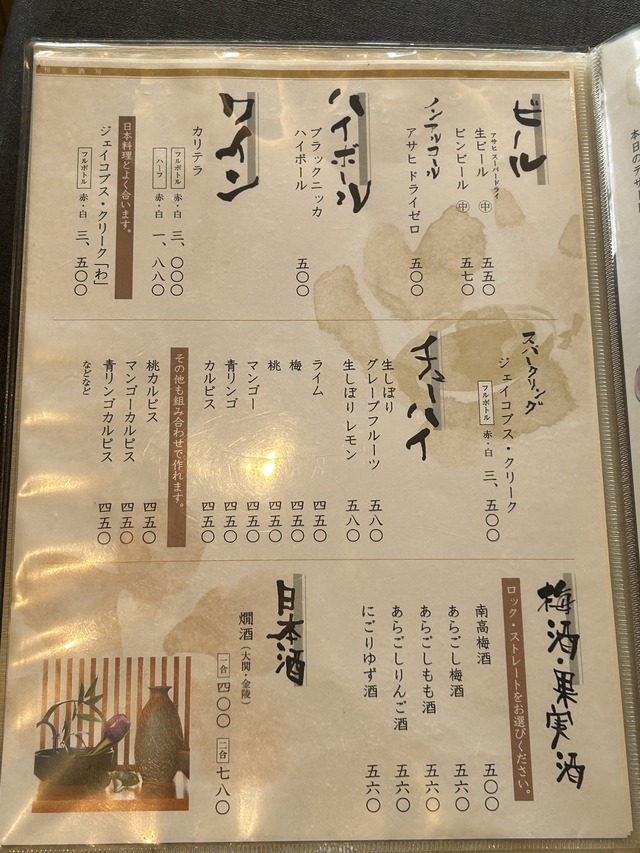 和楽酒房
ビール
アサヒ スーパードライ
生ビール ㊥ 五五〇
ビンビール ㊥ 五七〇
ノンアルコール
アサヒ ドライゼロ 五〇〇
ハイボール
ブラックニッカ
ハイボール 五〇〇
ワイン
カリテラ
フルボトル 赤・白 三、〇〇〇
ハーフ 赤・白 一、八八〇
日本料理とよく合います。
ジェイコブス・クリーク「わ」
フルボトル 赤・白 三、五〇〇
スパークリング
ジェイコブス・クリーク
フルボトル 赤・白 三、五〇〇
チューハイ
生しぼり
グレープフルーツ 五八〇
生しぼりレモン 五八〇
ライム 四五〇
梅 四五〇
桃 四五〇
マンゴー 四五〇
青リンゴ 四五〇
カルピス 四五〇
その他も組み合わせで作れます。
桃カルピス 四五〇
マンゴーカルピス 四五〇
青リンゴカルピス 四五〇
などなど
梅酒・果実酒
ロック・ストレートをお選びください。
南高梅酒 五〇〇
あらごし梅酒 五六〇
あらごしもも酒 五六〇
あらごしりんご酒 五六〇
にごりゆず酒 五六〇
日本酒
燗酒（大関・金陵）
一合 四〇〇 二合 七八〇